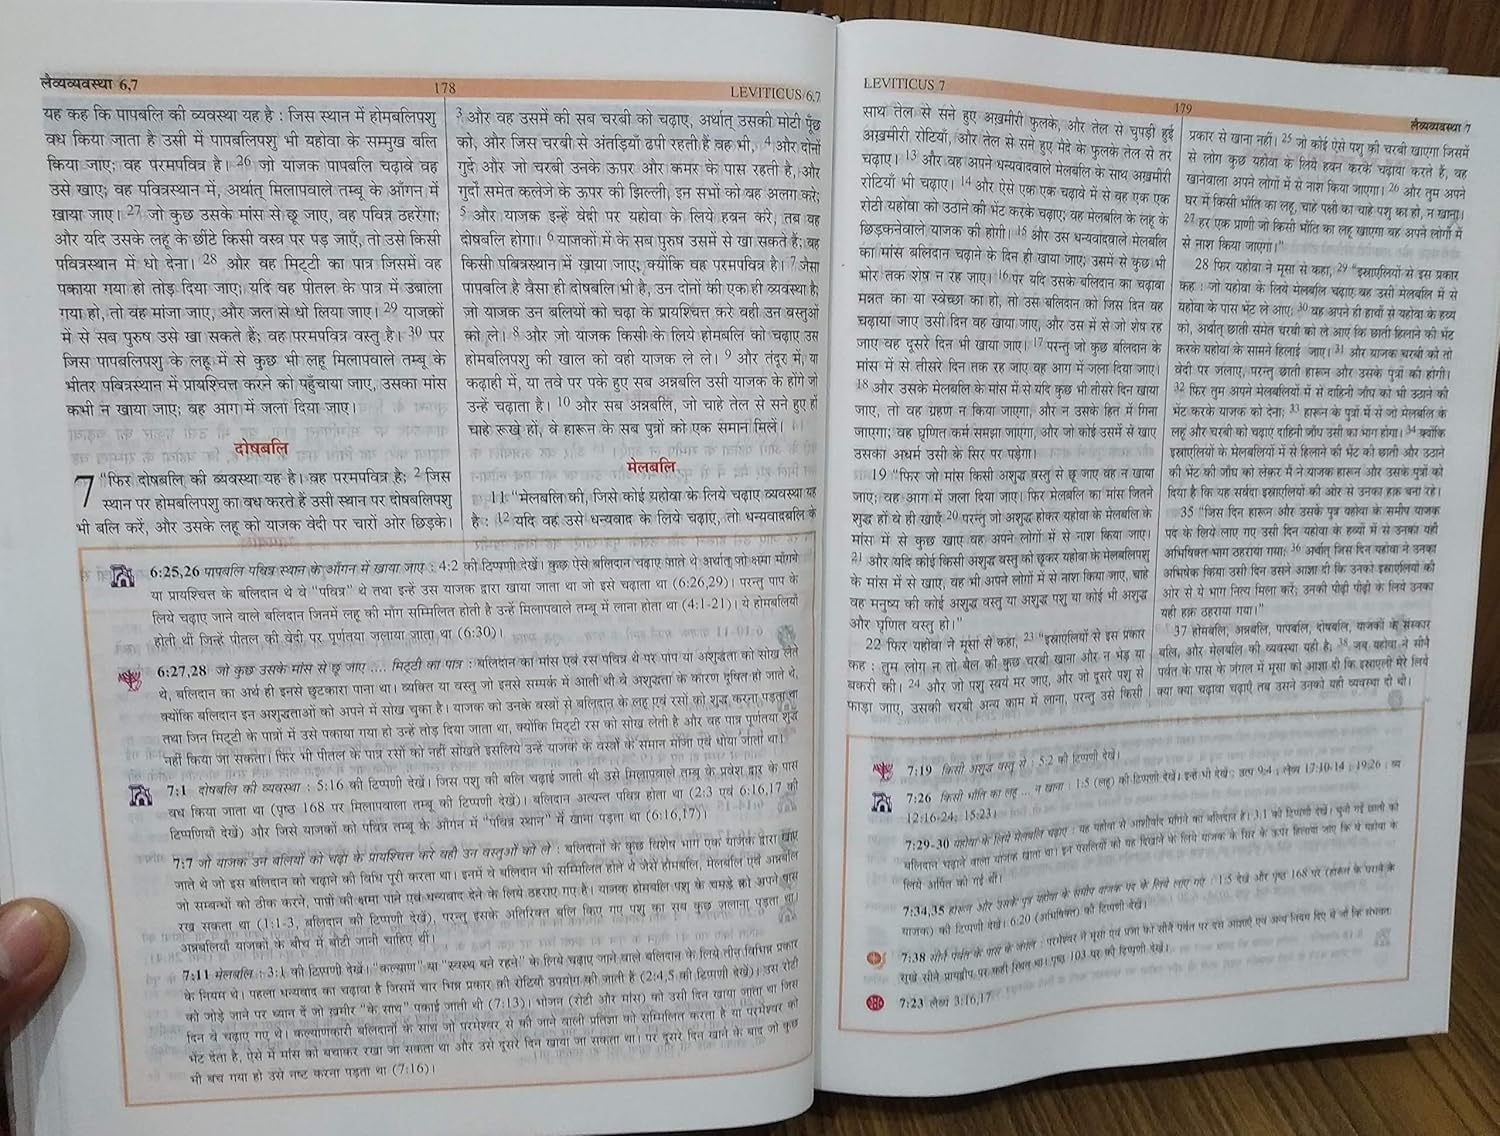 लैव्यव्यवस्था 6,7
178
LEVITICUS 6,7
यह कह कि पापबलि की व्यवस्था यह है : जिस स्थान में होमबलिपशु
वध किया जाता है उसी में पापबलिपशु भी यहोवा के सम्मुख बलि
किया जाए; वह परमपवित्र है। 26 जो याजक पापबलि चढ़ावे वह
उसे खाए; वह पवित्रस्थान में, अर्थात् मिलापवाले तम्बू के आँगन में
खाया जाए। 27 जो कुछ उसके मांस से छू जाए, वह पवित्र ठहरेगा;
और यदि उसके लहू के छींटे किसी वस्त्र पर पड़ जाएँ, तो उसे किसी
पवित्रस्थान में धो देना। 28 और वह मिट्टी का पात्र जिसमें वह
पकाया गया हो तोड़ दिया जाए; यदि वह पीतल के पात्र में उबाला
गया हो, तो वह मांजा जाए, और जल से धो लिया जाए। 29 याजकों
में से सब पुरुष उसे खा सकते हैं; वह परमपवित्र वस्तु है। 30 पर
जिस पापबलिपशु के लहू में से कुछ भी लहू मिलापवाले तम्बू के
भीतर पवित्रस्थान में प्रायश्चित्त करने को पहुँचाया जाए, उसका मांस
कभी न खाया जाए; वह आग में जला दिया जाए।
दोषबलि
7 "फिर दोषबलि की व्यवस्था यह है। वह परमपवित्र है; 2 जिस
स्थान पर होमबलिपशु का वध करते हैं उसी स्थान पर दोषबलिपशु
भी बलि करें, और उसके लहू को याजक वेदी पर चारों ओर छिड़के।
3 और वह उसमें की सब चरबी को चढ़ाए, अर्थात् उसकी मोटी पूँछ
को, और जिस चरबी से अंतड़ियाँ ढपी रहती हैं वह भी, 4 और दोनों
गुर्दे और जो चरबी उनके ऊपर और कमर के पास रहती है, और
गुर्दों समेत कलेजे के ऊपर की झिल्ली; इन सभों को वह अलग करे;
5 और याजक इन्हें वेदी पर यहोवा के लिये हवन करे; तब वह
दोषबलि होगा। 6 याजकों में के सब पुरुष उसमें से खा सकते हैं; वह
किसी पवित्रस्थान में खाया जाए; क्योंकि वह परमपवित्र है। 7 जैसा
पापबलि है वैसा ही दोषबलि भी है, उन दोनों की एक ही व्यवस्था है;
जो याजक उन बलियों को चढ़ा के प्रायश्चित्त करे वही उन वस्तुओं
को ले। 8 और जो याजक किसी के लिये होमबलि को चढ़ाए उस
होमबलिपशु की खाल को वही याजक ले ले। 9 और तंदूर में, या
कढ़ाही में, या तवे पर पके हुए सब अन्नबलि उसी याजक के होंगे जो
उन्हें चढ़ाता है। 10 और सब अन्नबलि, जो चाहे तेल से सने हुए हों
चाहे रूखे हों, वे हारून के सब पुत्रों को एक समान मिलें।
मेलबलि
11 "मेलबलि की, जिसे कोई यहोवा के लिये चढ़ाए व्यवस्था यह
है : 12 यदि वह उसे धन्यवाद के लिये चढ़ाए, तो धन्यवादबलि के
6:25,26 पापबलि पवित्र स्थान के आँगन में खाया जाए : 4:2 की टिप्पणी देखें। कुछ ऐसे बलिदान चढ़ाए जाते थे अर्थात् जो क्षमा माँगने
या प्रायश्चित्त के बलिदान थे वे "पवित्र" थे तथा इन्हें उस याजक द्वारा खाया जाता था जो इसे चढ़ाता था (6:26,29)। परन्तु पाप के
लिये चढ़ाए जाने वाले बलिदान जिनमें लहू की माँग सम्मिलित होती है उन्हें मिलापवाले तम्बू में लाना होता था (4:1-21)। ये होमबलियाँ
होती थीं जिन्हें पीतल की वेदी पर पूर्णतया जलाया जाता था (6:30)।
6:27,28 जो कुछ उसके मांस से छू जाए .... मिट्टी का पात्र : बलिदान का मांस एवं रस पवित्र थे पर पाप या अशुद्धता को सोख लेते
थे, बलिदान का अर्थ ही इनसे छुटकारा पाना था। व्यक्ति या वस्तु जो इनसे सम्पर्क में आती थी वे अशुद्धता के कारण दूषित हो जाते थे,
क्योंकि बलिदान इन अशुद्धताओं को अपने में सोख चुका है। याजक को उनके वस्त्रों से बलिदान के लहू एवं रसों को शुद्ध करना पड़ता था
तथा जिन मिट्टी के पात्रों में उसे पकाया गया हो उन्हें तोड़ दिया जाता था, क्योंकि मिट्टी रस को सोख लेती है और वह पात्र पूर्णतया शुद्ध
नहीं किया जा सकता। फिर भी पीतल के पात्र रसों को नहीं सोखते इसलिये उन्हें याजक के वस्त्रों के समान मांजा एवं धोया जाता था।
7:1 दोषबलि की व्यवस्था : 5:16 की टिप्पणी देखें। जिस पशु की बलि चढ़ाई जाती थी उसे मिलापवाले तम्बू के प्रवेश द्वार के पास
वध किया जाता था (पृष्ठ 168 पर मिलापवाला तम्बू की टिप्पणी देखें)। बलिदान अत्यन्त पवित्र होता था (2:3 एवं 6:16,17 की
टिप्पणियाँ देखें) और जिसे याजकों को पवित्र तम्बू के आँगन में "पवित्र स्थान" में खाना पड़ता था (6:16,17)।
7:7 जो याजक उन बलियों को चढ़ा के प्रायश्चित्त करे वही उन वस्तुओं को ले : बलिदानों के कुछ विशेष भाग एक याजक द्वारा खाए
जाते थे जो इस बलिदान को चढ़ाने की विधि पूरी करता था। इनमें वे बलिदान भी सम्मिलित होते थे जैसे होमबलि, मेलबलि एवं अन्नबलि
जो सम्बन्धों को ठीक करने, पापों की क्षमा पाने एवं धन्यवाद देने के लिये ठहराए गए है। याजक होमबलि पशु के चमड़े को अपने पास
रख सकता था (1:1-3, बलिदान की टिप्पणी देखें), परन्तु इसके अतिरिक्त बलि किए गए पशु का सब कुछ जलाना पड़ता था।
अन्नबलियाँ याजकों के बीच में बाँटी जानी चाहिए थीं।
7:11 मेलबलि : 3:1 की टिप्पणी देखें। "कल्याण" या "स्वस्थ बने रहने" के लिये चढ़ाए जाने वाले बलिदान के लिये तीन विभिन्न प्रकार
के नियम थे। पहला धन्यवाद का चढ़ावा है जिसमें चार भिन्न प्रकार की रोटियाँ उपयोग की जाती हैं (2:4,5 की टिप्पणी देखें)। उस रोटी
को जोड़े जाने पर ध्यान दें जो ख़मीर "के साथ" पकाई जाती थी (7:13)। भोजन (रोटी और मांस) को उसी दिन खाया जाता था जिस
दिन वे चढ़ाए गए थे। कल्याणकारी बलिदानों के साथ जो परमेश्वर से की जाने वाली प्रतिज्ञा को सम्मिलित करता है या परमेश्वर को
भेंट देता है, ऐसे में मांस को बचाकर रखा जा सकता था और उसे दूसरे दिन खाया जा सकता था। पर दूसरे दिन खाने के बाद जो कुछ
भी बच गया हो उसे नष्ट करना पड़ता था (7:16)।
LEVITICUS 7
179
लैव्यव्यवस्था 7
साथ तेल से सने हुए अख़मीरी फुलके, और तेल से चुपड़ी हुई
अख़मीरी रोटियाँ, और तेल से सने हुए मैदे के फुलके तेल से तर
चढ़ाए। 13 और वह अपने धन्यवादवाले मेलबलि के साथ अख़मीरी
रोटियाँ भी चढ़ाए। 14 और ऐसे एक एक चढ़ावे में से वह एक एक
रोटी यहोवा को उठाने की भेंट करके चढ़ाए; वह मेलबलि के लहू के
छिड़कनेवाले याजक की होगी। 15 और उस धन्यवादवाले मेलबलि
का मांस बलिदान चढ़ाने के दिन ही खाया जाए; उसमें से कुछ भी
भोर तक शेष न रह जाए। 16 पर यदि उसके बलिदान का चढ़ावा
मन्नत का या स्वेच्छा का हो, तो उस बलिदान को जिस दिन वह
चढ़ाया जाए उसी दिन वह खाया जाए, और उस में से जो शेष रह
जाए वह दूसरे दिन भी खाया जाए। 17 परन्तु जो कुछ बलिदान के
मांस में से तीसरे दिन तक रह जाए वह आग में जला दिया जाए।
18 और उसके मेलबलि के मांस में से यदि कुछ भी तीसरे दिन खाया
जाए, तो वह ग्रहण न किया जाएगा, और न उसके हित में गिना
जाएगा; वह घृणित कर्म समझा जाएगा, और जो कोई उसमें से खाए
उसका अधर्म उसी के सिर पर पड़ेगा।
19 "फिर जो मांस किसी अशुद्ध वस्तु से छू जाए वह न खाया
जाए; वह आग में जला दिया जाए। फिर मेलबलि का मांस जितने
शुद्ध हों वे ही खाएँ 20 परन्तु जो अशुद्ध होकर यहोवा के मेलबलि के
मांस में से कुछ खाए वह अपने लोगों में से नाश किया जाए।
21 और यदि कोई किसी अशुद्ध वस्तु को छूकर यहोवा के मेलबलिपशु
के मांस में से खाए, वह भी अपने लोगों में से नाश किया जाए, चाहे
वह मनुष्य की कोई अशुद्ध वस्तु या अशुद्ध पशु या कोई भी अशुद्ध
और घृणित वस्तु हो।"
22 फिर यहोवा ने मूसा से कहा, 23 "इस्राएलियों से इस प्रकार
कह : तुम लोग न तो बैल की कुछ चरबी खाना और न भेड़ या
बकरी की। 24 और जो पशु स्वयं मर जाए, और जो दूसरे पशु से
फाड़ा जाए, उसकी चरबी अन्य काम में लाना, परन्तु उसे किसी
प्रकार से खाना नहीं। 25 जो कोई ऐसे पशु की चरबी खाएगा जिसमें
से लोग कुछ यहोवा के लिये हवन करके चढ़ाया करते हैं, वह
खानेवाला अपने लोगों में से नाश किया जाएगा। 26 और तुम अपने
घर में किसी भाँति का लहू, चाहे पक्षी का चाहे पशु का हो, न खाना।
27 हर एक प्राणी जो किसी भाँति का लहू खाएगा वह अपने लोगों में
से नाश किया जाएगा।"
28 फिर यहोवा ने मूसा से कहा, 29 "इस्राएलियों से इस प्रकार
कह : जो यहोवा के लिये मेलबलि चढ़ाए वह उसी मेलबलि में से
यहोवा के पास भेंट ले आए; 30 वह अपने ही हाथों से यहोवा के हव्य
को, अर्थात् छाती समेत चरबी को ले आए कि छाती हिलाने की भेंट
करके यहोवा के सामने हिलाई जाए। 31 और याजक चरबी को तो
वेदी पर जलाए, परन्तु छाती हारून और उसके पुत्रों की होगी।
32 फिर तुम अपने मेलबलियों में से दाहिनी जाँघ को भी उठाने की
भेंट करके याजक को देना; 33 हारून के पुत्रों में से जो मेलबलि के
लहू और चरबी को चढ़ाए दाहिनी जाँघ उसी का भाग होगा। 34 क्योंकि
इस्राएलियों के मेलबलियों में से हिलाने की भेंट की छाती और उठाने
की भेंट की जाँघ को लेकर मैं ने याजक हारून और उसके पुत्रों को
दिया है कि यह सर्वदा इस्राएलियों की ओर से उनका हक़ बना रहे।
35 "जिस दिन हारून और उसके पुत्र यहोवा के समीप याजक
पद के लिये लाए गए उसी दिन यहोवा के हव्यों में से उनका यही
अभिषिक्त भाग ठहराया गया; 36 अर्थात् जिस दिन यहोवा ने उनका
अभिषेक किया उसी दिन उसने आज्ञा दी कि उनको इस्राएलियों की
ओर से ये भाग नित्य मिला करें; उनकी पीढ़ी पीढ़ी के लिये उनका
यही हक़ ठहराया गया।"
37 होमबलि, अन्नबलि, पापबलि, दोषबलि, याजकों के संस्कार
बलि, और मेलबलि की व्यवस्था यही है; 38 जब यहोवा ने सीनै
पर्वत के पास के जंगल में मूसा को आज्ञा दी कि इस्राएली मेरे लिये
क्या क्या चढ़ावा चढ़ाएँ तब उसने उनको यही व्यवस्था दी थी।
7:19 किसी अशुद्ध वस्तु से : 5:2 की टिप्पणी देखें।
7:26 किसी भाँति का लहू ... न खाना : 1:5 (लहू) की टिप्पणी देखें। इन्हें भी देखें : उत्प 9:4 ; लैव्य 17:10-14 ; 19:26 ; व्य
12:16-24; 15:23)।
7:29-30 यहोवा के लिये मेलबलि चढ़ाए : यह यहोवा से आशीर्वाद माँगने का बलिदान है। 3:1 की टिप्पणी देखें। चुनी गई छाती को
बलिदान चढ़ाने वाला याजक खाता था। इन पसलियों को यह दिखाने के लिये याजक के सिर के ऊपर हिलाया जाए कि ये यहोवा के
लिये अर्पित की गई थीं।
7:34,35 हारून और उसके पुत्र यहोवा के समीप याजक पद के लिये लाए गए : 1:5 देखें और पृष्ठ 168 पर (हारून के घराने के
याजक) की टिप्पणी देखें। 6:20 (अभिषिक्त) की टिप्पणी देखें।
7:38 सीनै पर्वत के पास के जंगल : परमेश्वर ने मूसा एवं प्रजा को सीनै पर्वत पर दस आज्ञाएँ एवं अन्य नियम दिए थे जो कि संभवतः
सूखे सीनै प्रायद्वीप पर कहीं स्थित था। पृष्ठ 103 पर की टिप्पणी देखें।
7:23 लैव्य 3:16,17